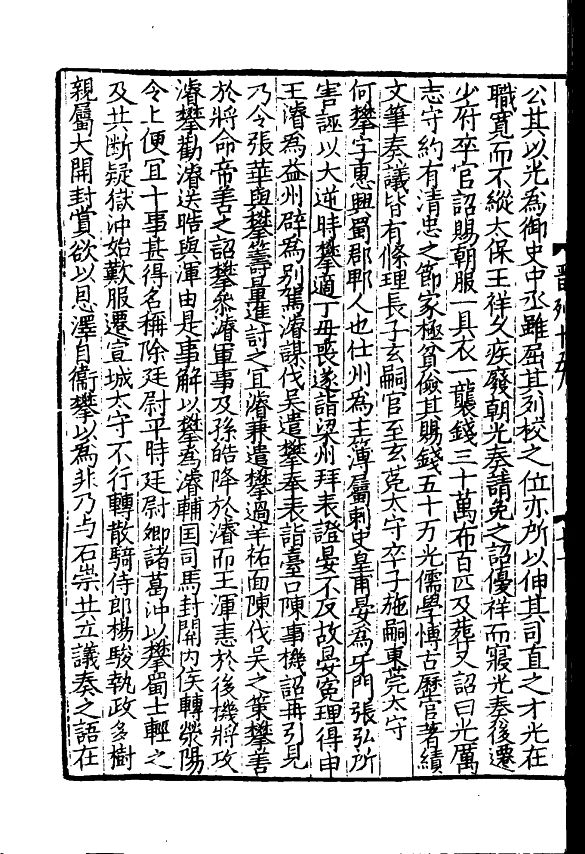 公其以光為御史中丞雖屈其列校之位亦所以伸其司直之才光在
職寬而不縱太保王祥久疾廢朝光奏請免之詔優祥而寢光奏後遷
少府卒官詔賜朝服一具衣一襲錢三十萬布百匹及葬又詔曰光厲
志守約有清忠之節家極貧儉其賜錢五十万光儒學博古歷官著績
文筆奏議皆有條理長子玄嗣官至玄菟太守卒子施嗣東莞太守
何攀字惠興蜀郡郫人也仕州為主簿屬刺史皇甫晏為牙門張弘所
害誣以大逆時攀適丁母喪遂詣梁州拜表證晏不反故晏冤理得申
王濬為益州辟為別駕濬謀伐吳遣攀奉表詣臺口陳事機詔再引見
乃令張華與攀籌量進討之宜濬兼遣攀過羊祜面陳伐吳之策攀善
於將命帝善之詔攀參濬軍事及孫皓降於濬而王渾恚於後機將攻
濬攀勸濬送皓與渾由是事解以攀為濬輔国司馬封関内侯轉滎陽
令上便冝十事甚得名稱除廷尉平時廷尉卿諸葛沖以攀蜀士輕之
及共断疑獄沖始歎服遷宣城太守不行轉散騎侍郎楊駿執政多樹
親屬大開封賞欲以恩澤自衛攀以為非乃与石崇共立議奏之語在